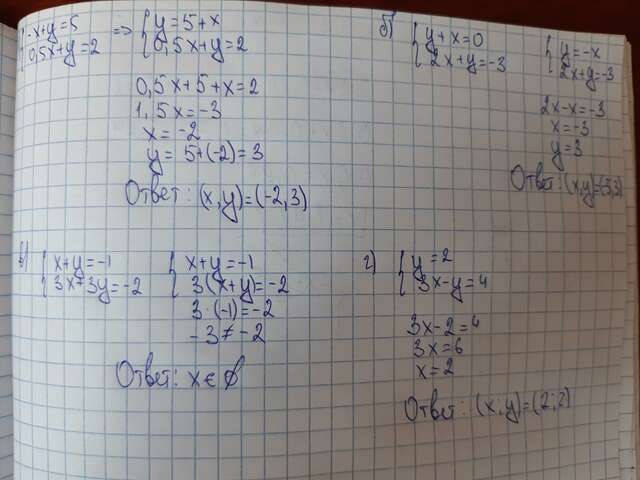 { -x+y=5
0,5x+y=2 => { y=5+x
0,5x+y=2
0,5x+5+x=2
1,5x=-3
x=-2
y=5+(-2)=3
Ответ: (x,y)=(-2,3)
б) { y+x=0
2x+y=-3
{ y=-x
2x+y=-3
2x-x=-3
x=-3
y=3
Ответ: (x,y)=(-3,3)
в) { x+y=-1
3x+3y=-2
{ x+y=-1
3(x+y)=-2
3·(-1)=-2
-3≠-2
Ответ: x∈∅
г) { y=2
3x-y=4
3x-2=4
3x=6
x=2
Ответ: (x;y)=(2;2)